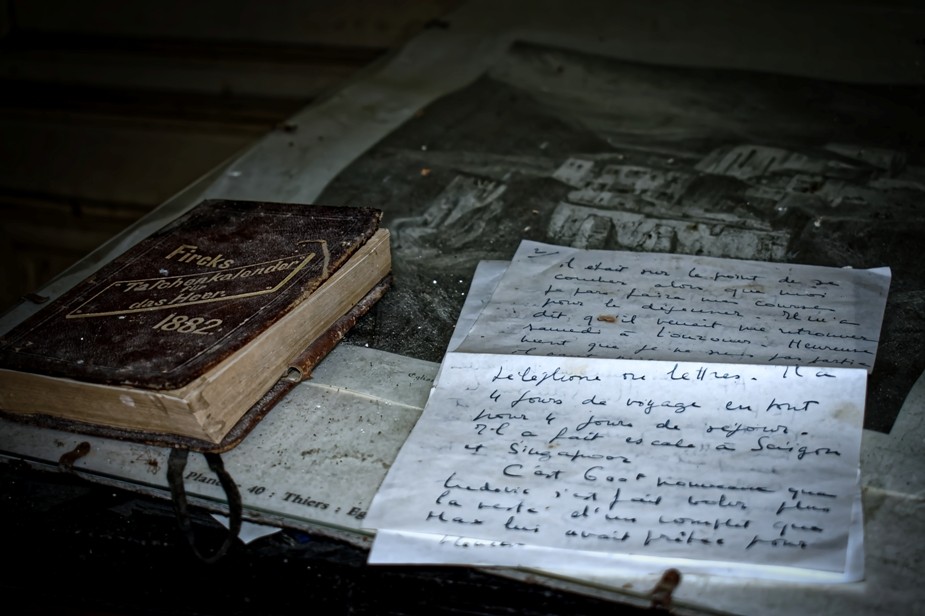 Fircks
Taschenkalender
das Heer
1882
Planche 40 : Thiers :
2/
il était sur le point de se
coucher alors que moi
je
pour le déjeuner. Il m'a
dit qu'il venait me retrouver
samedi à
que je ne suis pas
téléphone ou lettres. Il a
4 jours de voyage en tout
pour 4 jours de séjour.
Il a fait escale à Saïgon
et Singapour
C'est que
s'est fait voler plus
la veste d'un complet que
Max lui avait prêtée pour